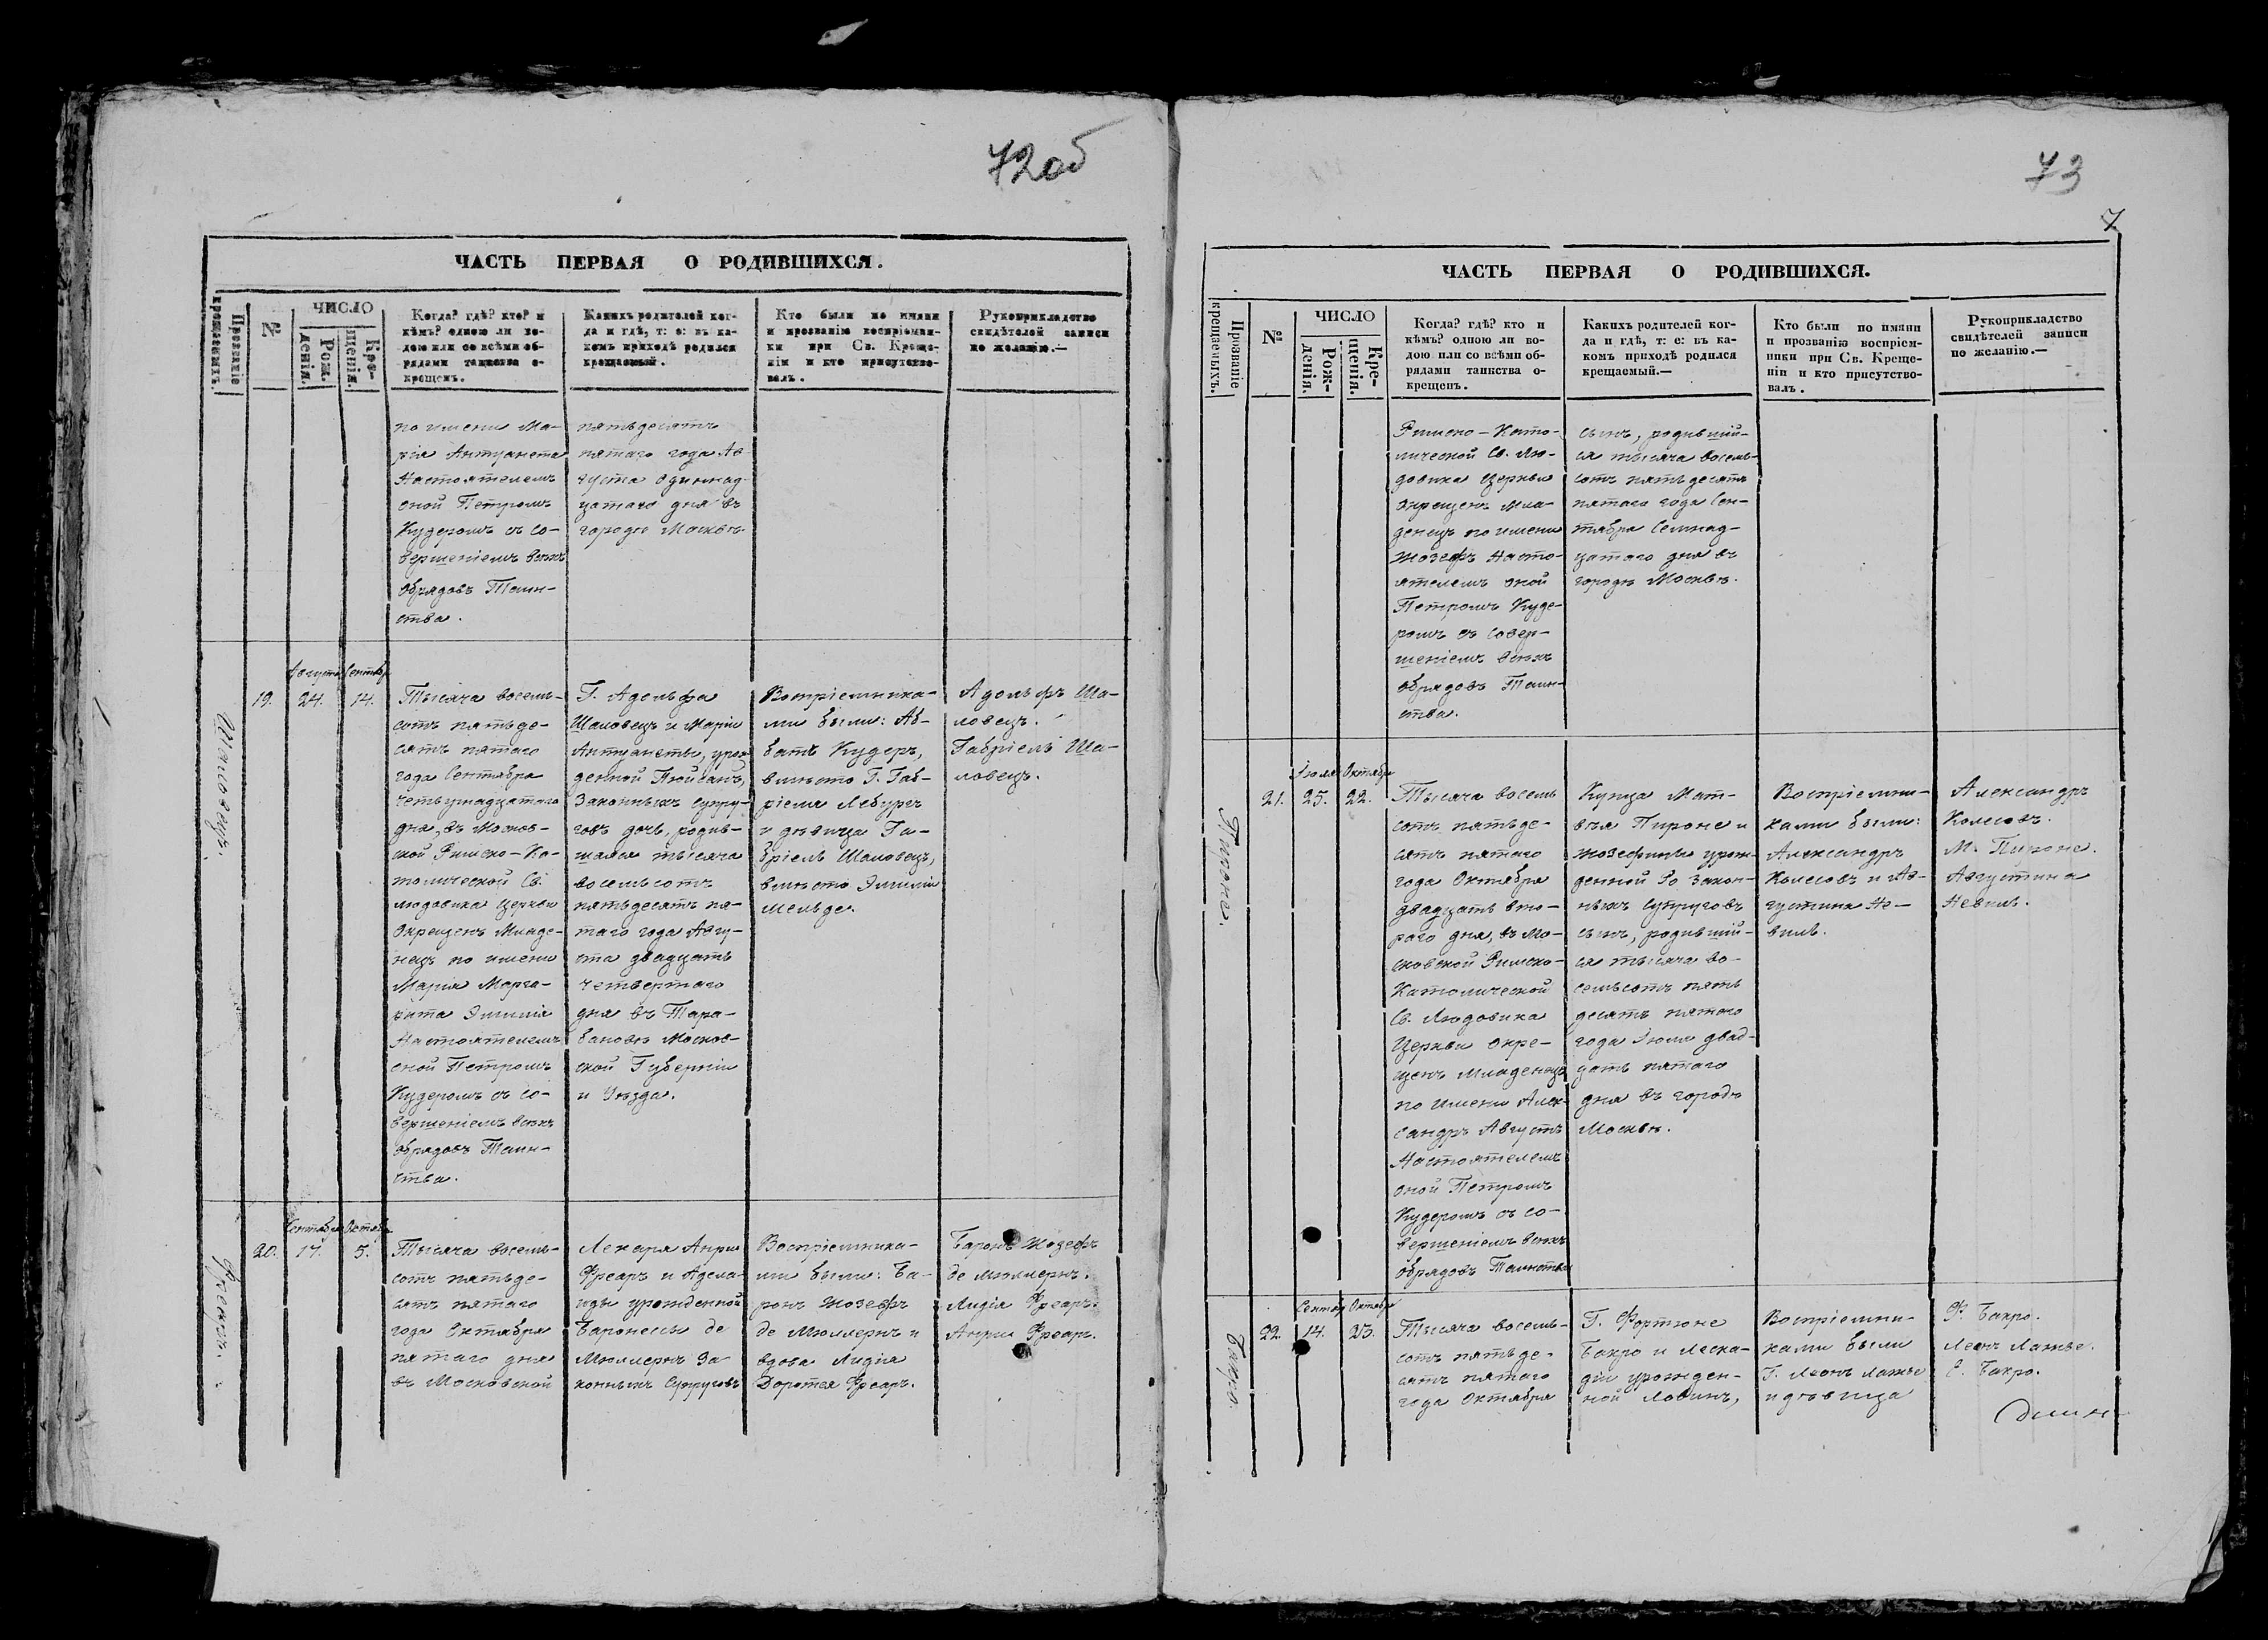 72об
ЧАСТЬ ПЕРВАЯ О РОДИВШИХСЯ.
Прозваніе крещаемыхъ.
№
ЧИСЛО
Рож-
денія.
Кре-
щенія.
Когда? гдѣ? кто? и
кѣмъ? одною ли во-
дою или со всѣми об-
рядами таинства о-
крещенъ.
Какихъ родителей ког-
да и гдѣ, т: е: въ ка-
комъ приходѣ родился
крещаемый.
Кто были по имяни
и прозванію воспріемни-
ки при Св. Креще-
ніи и кто присутство-
валъ.
Рукоприкладство
свидѣтелей записи
по желанію.—
по имени Ма-
рія Антуанета
Настоятелемъ
оной Петромъ
Кудеромъ съ со-
вершеніемъ всѣхъ
обрядовъ Таин-
ства.
пятьдесятъ
пятаго года Ав-
густа одиннад-
цатаго дня въ
городѣ Москвѣ.
Шаловецъ.
19.
Августа
24.
Сентяб.
14.
Тысяча восемь-
сотъ пятьде-
сятъ пятаго
года Сентября
четырнадцатаго
дня, въ Москов-
ской Римско-Ка-
толической Св.
Людовика Церкви
Окрещенъ Младе-
нецъ по имени
Марія Марга-
рита Эмилія
Настоятелемъ
оной Петромъ
Кудеромъ съ со-
вершеніемъ всѣхъ
обрядовъ Таин-
ства.
Г. Адольфа
Шаловецъ и Маріи
Антуанеты, урож-
денной Пюйсанъ,
Законныхъ Супру-
говъ дочь, родив-
шаяся тысяча
восемьсотъ
пятьдесятъ пя-
таго года Авгу-
ста двадцать
четвертаго
дня въ Тара-
бановѣ Москов-
ской Губерніи
и Уѣзда.
Воспріемника-
ми были: Аб-
батъ Кудеръ,
вмѣсто Г. Габ-
ріеля Лебургъ
и дѣвица Га-
бріель Шаловецъ,
вмѣсто Эмиліи
Мельде.
Адольфъ Ша-
ловецъ.
Габріель Ша-
ловецъ.
Фреаръ.
20.
Сентября
17.
Октяб.
5.
Тысяча восемь-
сотъ пятьде-
сятъ пятаго
года Октября
пятаго дня
въ Московской
Лекаря Анри
Фреаръ и Адела-
иды урожденной
Баронессы де
Мюллернъ За-
конныхъ Супруговъ
Воспріемника-
ми были: Ба-
ронъ Жозефъ
де Мюллернъ и
вдова Лидія
Доротея Фреаръ.
Баронъ Жозефъ
де Мюллернъ.
Лидія Фреаръ.
Анри Фреаръ.
73
7
ЧАСТЬ ПЕРВАЯ О РОДИВШИХСЯ.
Прозваніе крещаемыхъ.
№
ЧИСЛО
Рож-
денія.
Кре-
щенія.
Когда? гдѣ? кто и
кѣмъ? одною ли во-
дою или со всѣми об-
рядами таинства о-
крещенъ.
Какихъ родителей ког-
да и гдѣ, т: е: въ ка-
комъ приходѣ родился
крещаемый.—
Кто были по имяни
и прозванію воспріем-
ники при Св. Креще-
ніи и кто присутство-
валъ.
Рукоприкладство
свидѣтелей записи
по желанію.—
Римско-Като-
лической Св. Лю-
довика Церкви
Окрещенъ Мла-
денецъ по имени
Жозефъ Насто-
ятелемъ оной
Петромъ Куде-
ромъ съ совер-
шеніемъ всѣхъ
обрядовъ Таин-
ства.
сынъ, родившій-
ся тысяча восемь-
сотъ пятьдесятъ
пятаго года Сен-
тября Семнад-
цатаго дня въ
городѣ Москвѣ.
Пироне.
21.
Іюля
25.
Октября
22.
Тысяча восемь
сотъ пятьде-
сятъ пятаго
года Октября
двадцать вто-
раго дня, въ Мо-
сковской Римско-
Католической
Св. Людовика
Церкви Окре-
щенъ Младенецъ
по имени Алек-
сандръ Августъ
Настоятелемъ
оной Петромъ
Кудеромъ съ со-
вершеніемъ всѣхъ
обрядовъ Таинства
Купца Мат-
вѣя Пироне и
Жозефины урож-
денной Ро Закон-
ныхъ Супруговъ
сынъ, родившій-
ся тысяча во-
семьсотъ пять
десятъ пятаго
года Іюля двад-
цать пятаго
дня въ городѣ
Москвѣ.
Воспріемни-
ками были:
Александръ
Колесовъ и Ав-
густина Не-
виль.
Александръ
Колесовъ.
М. Пироне.
Августина
Невиль.
Бакро.
22.
Сентяб.
14.
Октября
23.
Тысяча восемь-
сотъ пятьде-
сятъ пятаго
года Октября
Г. Фортюне
Бакро и Леока-
діи урожден-
ной Ловинъ,
Воспріемни-
ками были
Г. Леонъ Лажье
и дѣвица
Ф. Бакро.
Леонъ Лажье.
Е. Бакро.